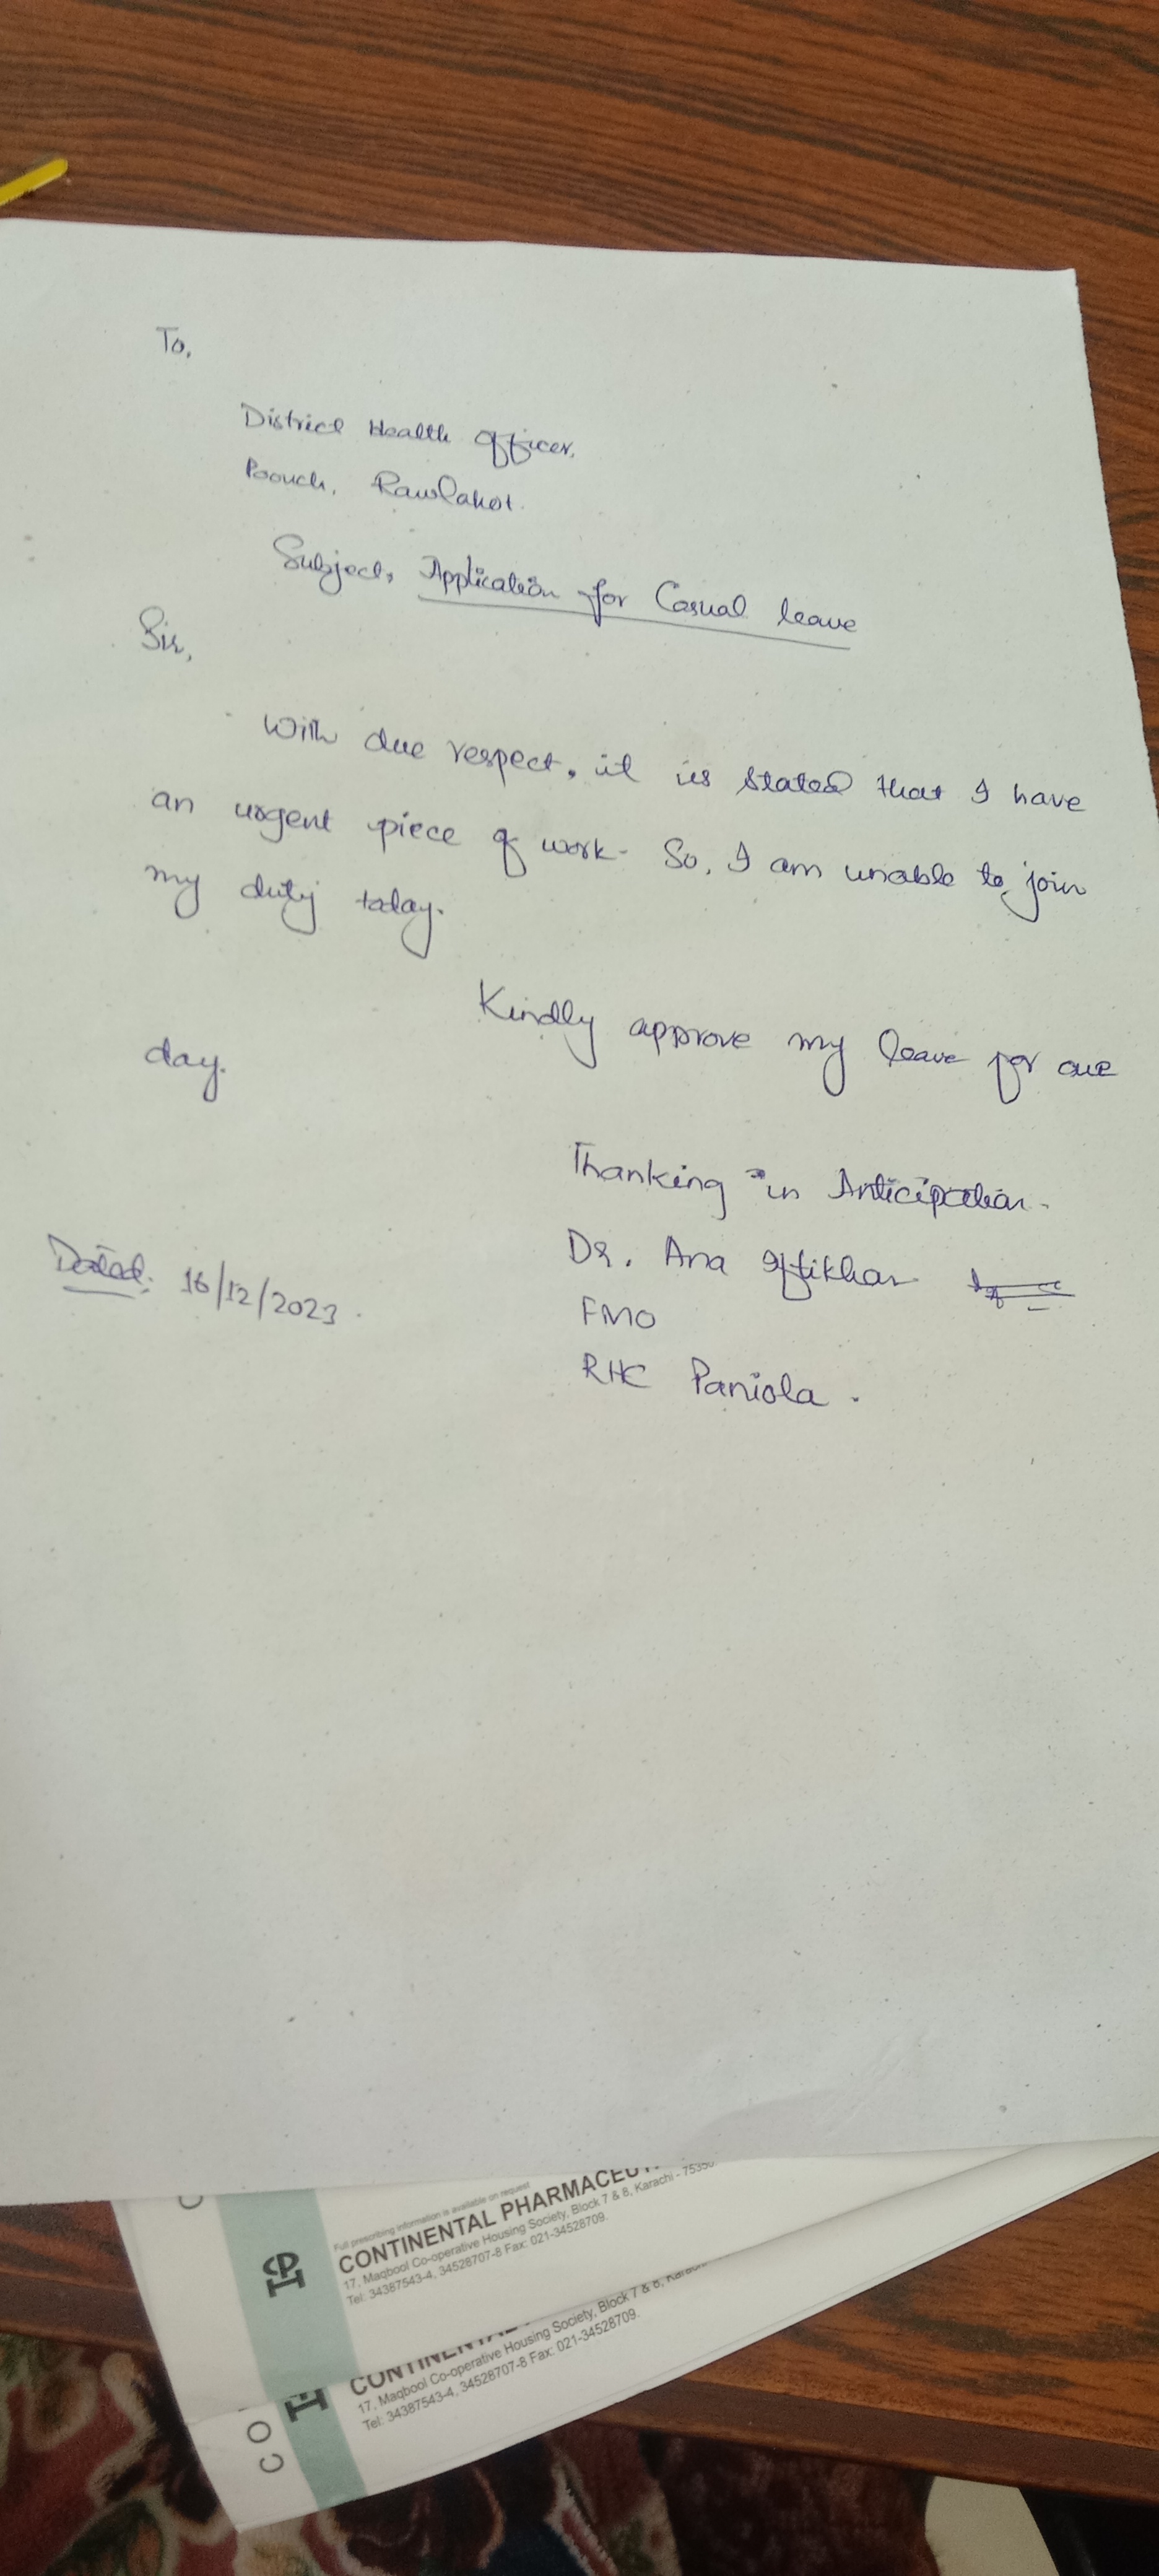 To,
District Health Officer,
Poouch, Rawlakot.
Subject, Application for Casual leave
Sir,
With due respect, it is stated that I have
an urgent piece of work. So, I am unable to join
my duty today.
Kindly approve my leave for one
day.
Thanking in Anticipation.
Dr. Ana Iftikhar
FMO
RHC Paniola.
Dated: 16/12/2023.
Full prescribing information is available on request
CONTINENTAL PHARMACEUT
17, Maqbool Co-operative Housing Society, Block 7 & 8, Karachi - 75350
Tel: 34387543-4, 34528707-8 Fax: 021-34528709.
CONTINENTAL
17, Maqbool Co-operative Housing Society, Block 7 & 8, Karachi
Tel: 34387543-4, 34528707-8 Fax: 021-34528709.
CO